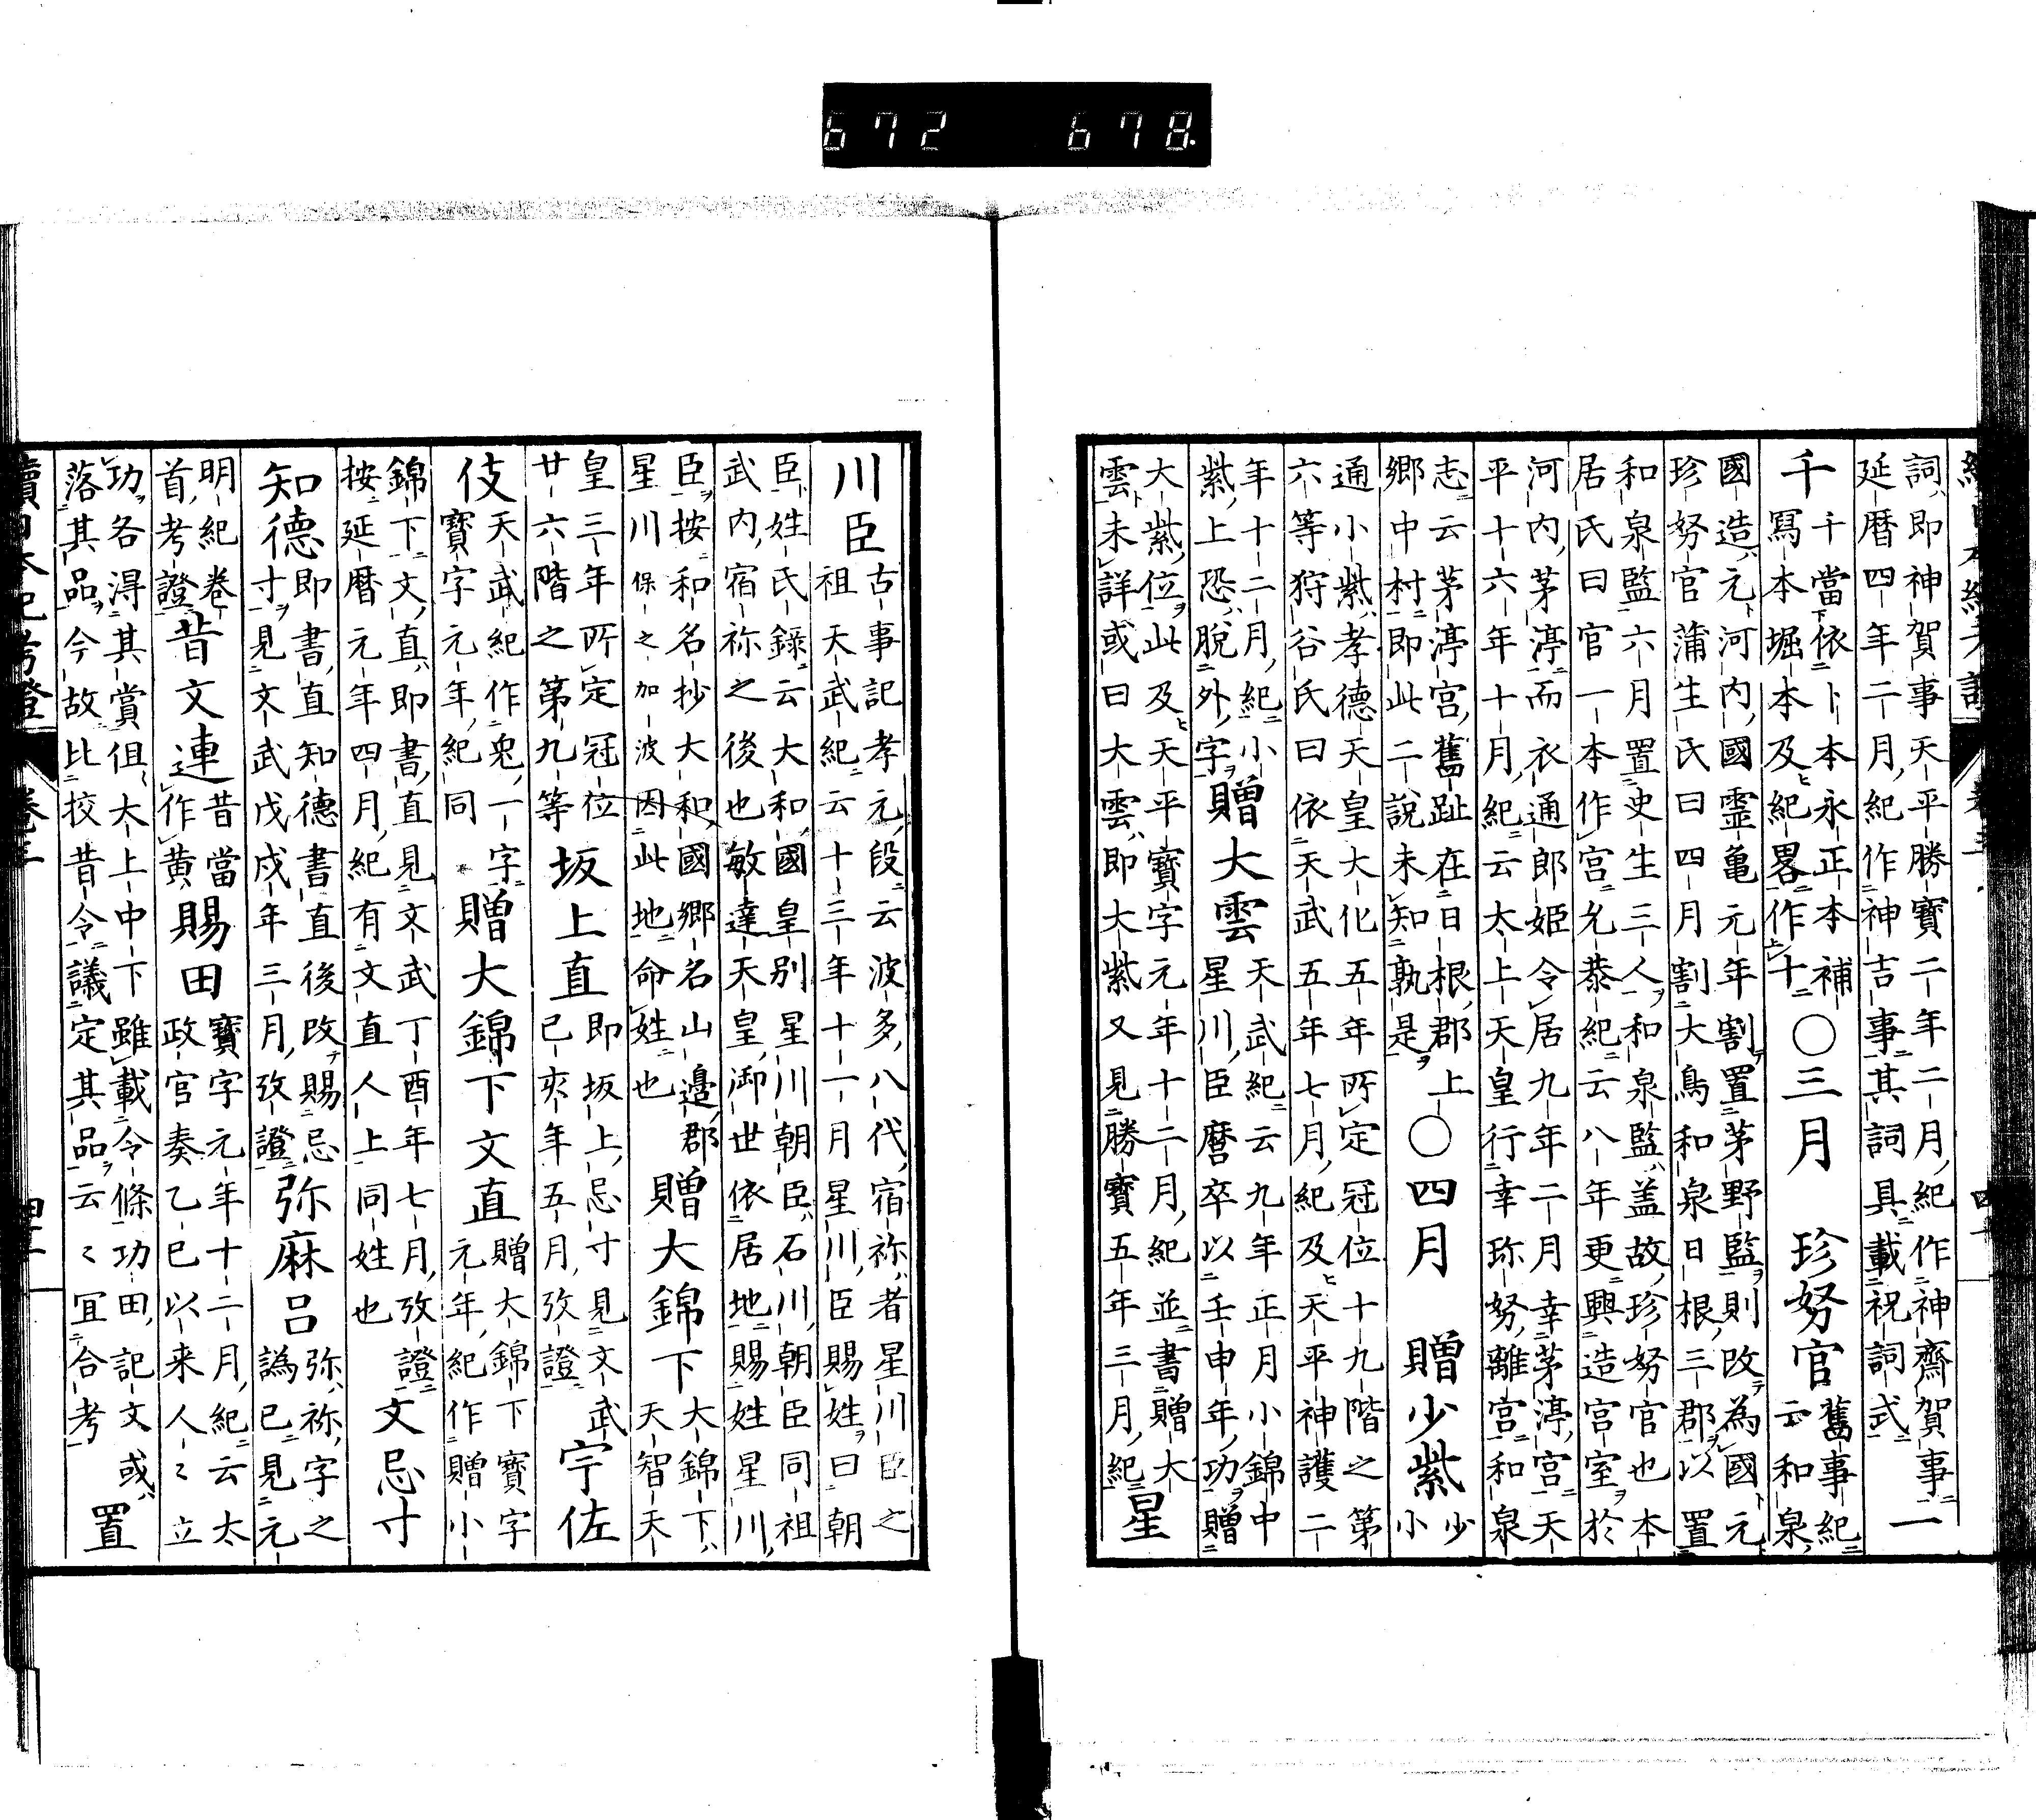 672 678
詞即神賀事天平勝寶二年二月紀作神齋賀事
延暦四年二月紀作神吉事其詞具載祝詞式
一
千
千當依卜本永正本補
寫本堀本及紀畧作十
〇三月 珍努官
舊事紀
云和泉
國造元河内國靈亀元年割置茅野監則改為國元
珍努官蒲生氏曰四月割大鳥和泉日根三郡以置
和泉監六月置史生三人和泉監盖故珍努官也本
居氏曰官一本作宮允恭紀云八年更興造宮室於
河内茅渟而衣通郎姫令居九年二月幸茅渟宮天
平十六年十月紀云太上天皇行幸珎努離宮和泉
志云茅渟宮舊趾在日根郡上
鄉中村即此二說未知孰是
〇四月 贈少紫
少
小
通小紫孝德天皇大化五年所定冠位十九階之第
六等狩谷氏曰依天武五年七月紀及天平神護二
年十二月紀小
紫上恐脫外字
贈大雲
天武紀云九年正月小錦中
星川臣麿卒以壬申年功贈
大紫位此及天平寶字元年十二月紀並書贈大
雲未詳或曰大雲即大紫又見勝寶五年三月紀
星
川臣
古事記孝元段云波多八代宿祢者星川臣之
祖天武紀云十三年十一月星川臣賜姓曰朝
臣姓氏錄云大和國皇別星川朝臣石川朝臣同祖
武内宿祢之後也敏達天皇御世依居地賜姓星川
臣按和名抄大和國鄉名山邊郡
星川保之加波因此地命姓也
贈大錦下
大錦下
天智天
皇三年所定冠位
廿六階之第九等
坂上直
即坂上忌寸見文武
已亥年五月攷證
宇佐
伎
天武紀作兎一字
寶字元年紀同
贈大錦下文直
贈大錦下寶字
元年紀作贈小
錦下文直即書直見文武丁酉年七月攷證
按延暦元年四月紀有文直人上同姓也
文忌寸
知德
即書直知德書直後改賜忌
寸見文武戊戌年三月攷證
弥麻呂
弥祢字之
譌已見元
明紀卷
首考證
昔文連
昔當
作黄
賜田
寶字元年十二月紀云太
政官奏乙巳以来人〻立
功各淂其賞但大上中下雖載令條功田記文或
落其品今故比挍昔令議定其品云〻冝合考
置
續日本紀考證
卷三